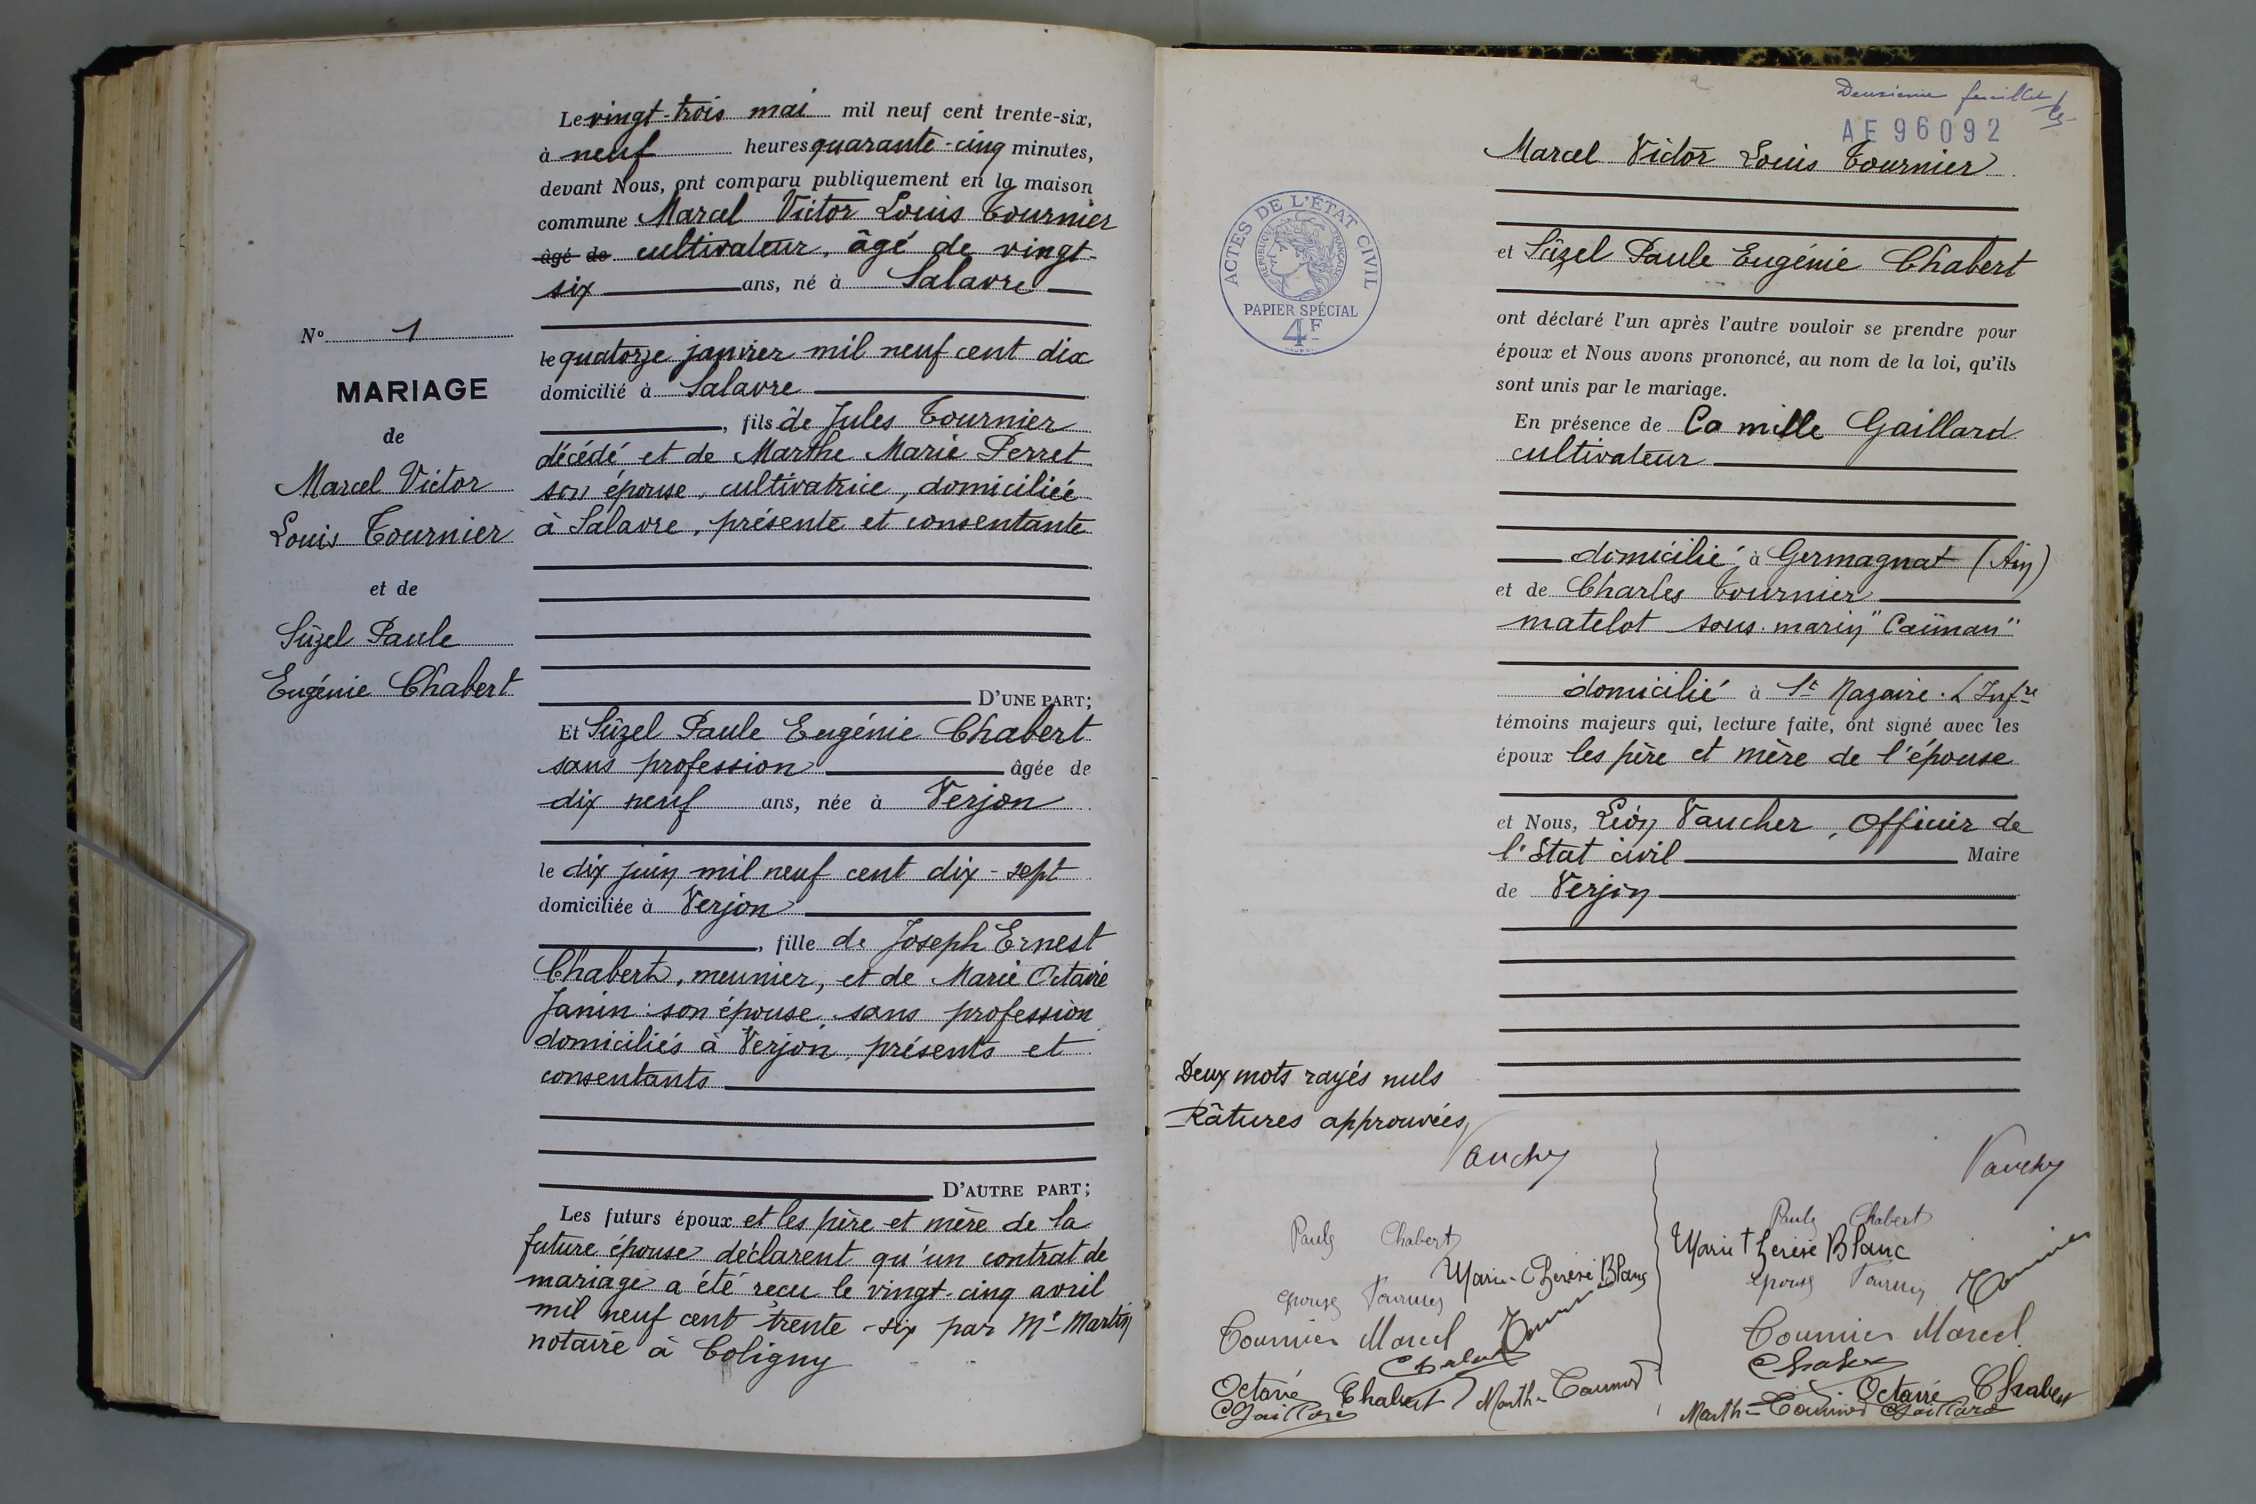 Le vingt-trois mai mil neuf cent trente-six,
à neuf heures quarante-cinq minutes,
devant Nous, ont comparu publiquement en la maison
commune Marcel Victor Louis Tournier
âgé de cultivateur, âgé de vingt-
six ans, né à Salavre
le quatorze janvier mil neuf cent dix
domicilié à Salavre
, fils de Jules Tournier
décédé et de Marthe Marie Perret
son épouse, cultivatrice, domiciliée
à Salavre, présente et consentante
D'UNE PART;
Et Sûzel Paule Eugénie Chabert
sans profession âgée de
dix neuf ans, née à Verjon
le dix juin mil neuf cent dix-sept
domiciliée à Verjon
, fille de Joseph Ernest
Chabert, meunier, et de Marie Octavie
Janin son épouse, sans profession
domiciliés à Verjon, présents et
consentants
D'AUTRE PART;
Les futurs époux et les père et mère de la
future épouse déclarent qu'un contrat de
mariage a été reçu le vingt-cinq avril
mil neuf cent trente-six par Me Martin
notaire à Coligny
No 1
MARIAGE
de
Marcel Victor
Louis Tournier
et de
Sûzel Paule
Eugénie Chabert
Deuxième feuillet
AE 96092
ACTES DE L'ÉTAT CIVIL
RÉPUBLIQUE FRANÇAISE
PAPIER SPÉCIAL
4F
Marcel Victor Louis Tournier
et Sûzel Paule Eugénie Chabert
ont déclaré l'un après l'autre vouloir se prendre pour
époux et Nous avons prononcé, au nom de la loi, qu'ils
sont unis par le mariage.
En présence de Camille Gaillard
cultivateur
domicilié à Germagnat (Ain)
et de Charles Tournier
matelot sous-marin "Caïman"
domicilié à St Nazaire. L. Infre
témoins majeurs qui, lecture faite, ont signé avec les
époux les père et mère de l'épouse
et Nous, Léon Vaucher, Officier de
l'Etat civil Maire
de Verjon
Deux mots rayés nuls
Râtures approuvées
Vaucher
Vaucher
Paule Chabert
Marie-Thérèse Blanc
épouse Tournier
Tournier Marcel
Chabert
Octavie Chabert Marthe Tournier
Gaillard
Paule Chabert
Marie Thérèse Blanc
épouse Tournier
Tournier Marcel
Chabert
Octavie Chabert
Marthe Tournier Gaillard